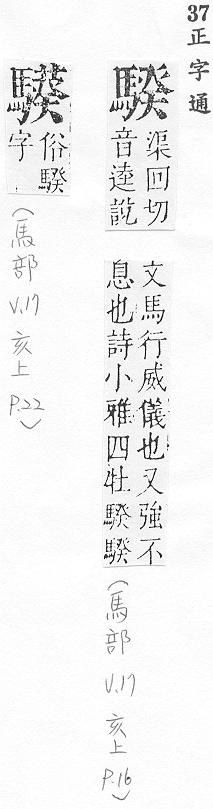 37 正字通
騤
渠回切
音逵說
文馬行威儀也又強不
息也詩小雅四牡騤騤
(馬部 V.17 亥上 P.16)
俗騤
字
(馬部 V.17 亥上 P.22)